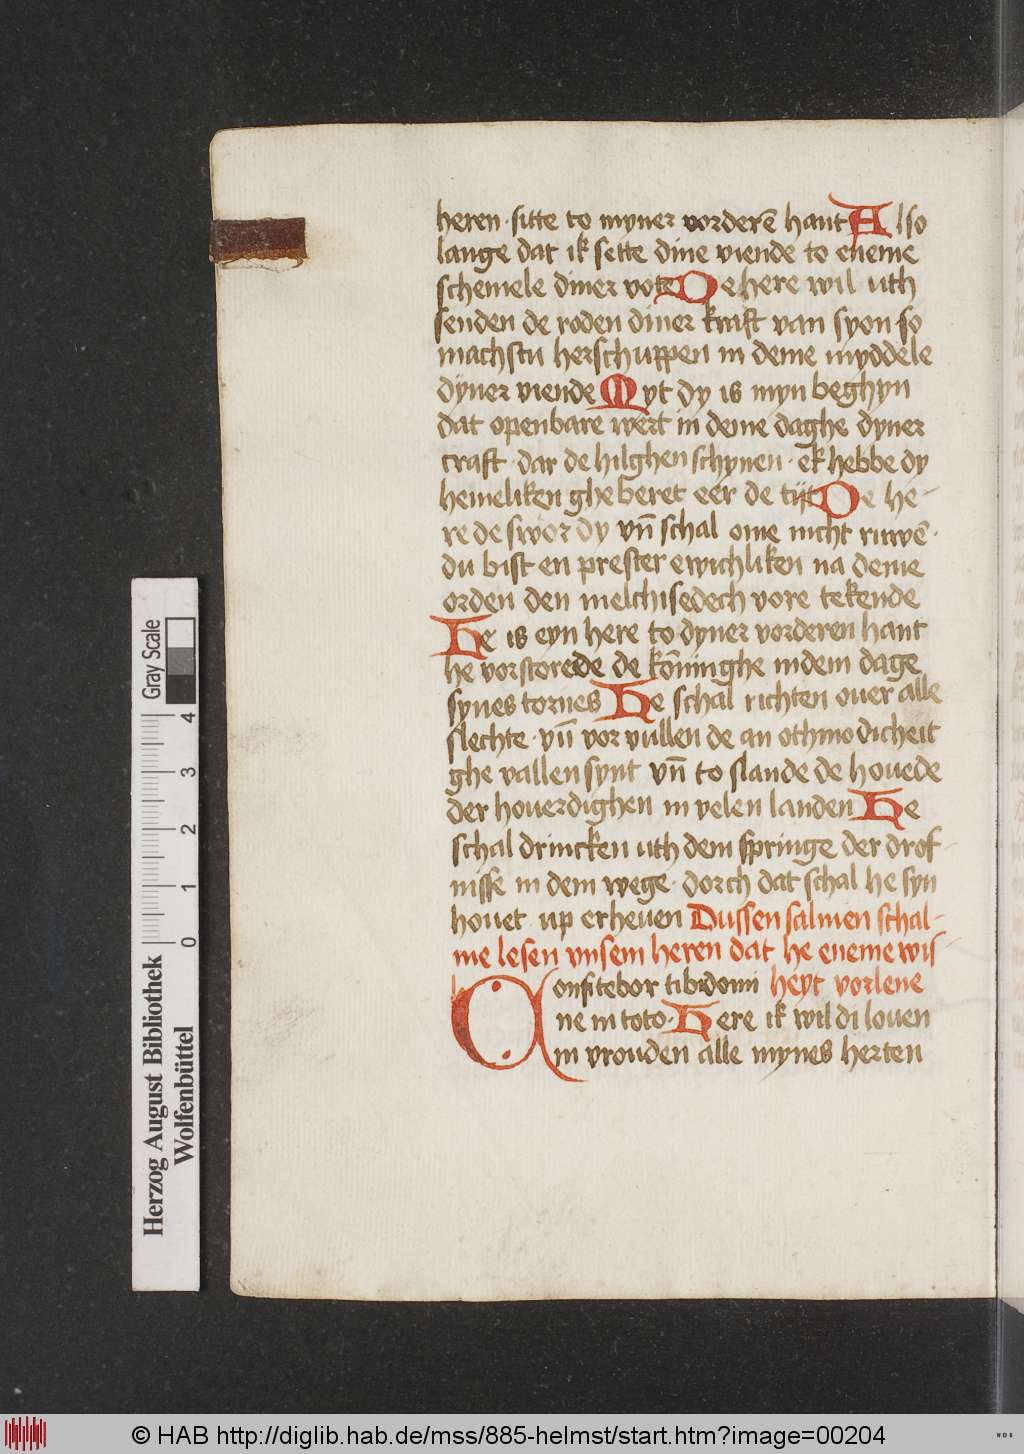 heren · sitte to myner vorderē hant Also
lange dat ik sette dine viende to eneme
schemele diner vote De here wil uth
senden de roden diner kraft van syon so
machstu herschuppen in deme myddele
dyner viende Myt dy is myn beghyn
dat openbare wert in deme daghe dyner
craft · dar de hilghen schynen · ek hebbe dy
hemeliken ghe beret eer de tijt De he-
re de swor dy vn̄ schal ome nicht ruwē ·
du bist en prester ewichliken na deme
orden den melchisedech vore tekende
He is eyn here to dyner vorderen hant
he vorstorede de kōninghe in dem dage
synes tornes He schal richten ouer alle
slechte · vn̄ vor vullen de an othmodicheit
ghe vallen synt vn̄ to slande de houede
der houerdighen in velen landen He
schal drincken uth dem springe der drof-
nisse in dem wege · dorch dat schal he syn
houet up erheuen Dussen salmen schal-
me lesen vnsem heren dat he eneme wis
Confitebor tibi domi heyt vorlene
ne in toto · Here ik wil di louen
in vrouden alle mynes herten
Gray Scale
4
3
2
1
0
Herzog August Bibliothek
Wolfenbüttel
© HAB http://diglib.hab.de/mss/885-helmst/start.htm?image=00204